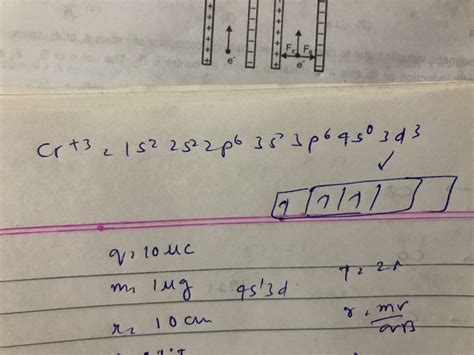 e⁻ Fₑ e⁻
Cr⁺³ = 1s² 2s² 2p⁶ 3s² 3p⁶ 4s⁰ 3d³
1 1 1 1
q = 10 μC
m = 1 μg 4s¹3d
r = 10 cm
r = mv/qB